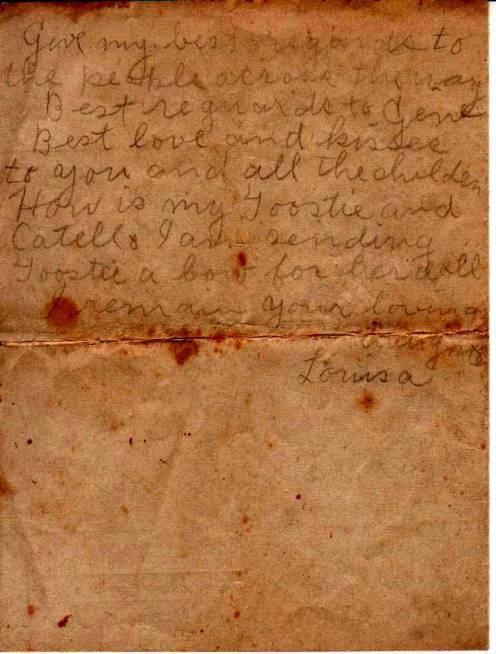 Give my best regards to
the people across the way
Best reguards to Gene
Best love and kisses
to you and all the childen
How is my Toostie and
Catello I am sending
Toostie a bow for her doll
I remain your loving
Louisa